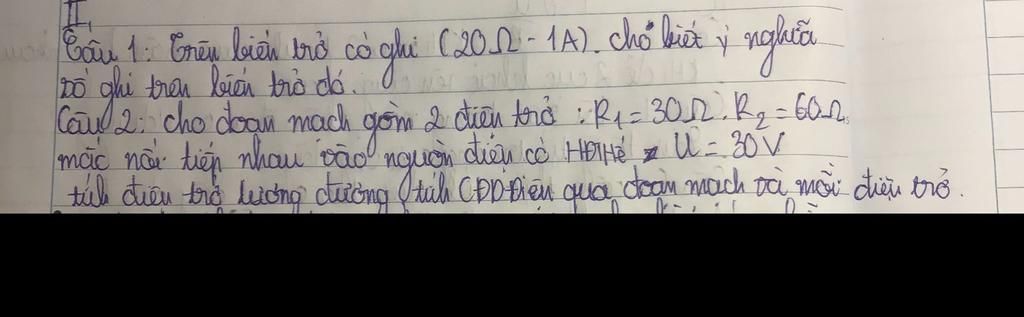 II,
Câu 1: Trên biến trở có ghi (20Ω - 1A). chô biết ý nghĩa
số ghi trên biến trở đó.
Câu 2: cho đoạn mạch gồm 2 điện trở : R₁ = 30Ω. R₂ = 60Ω.
mắc nối tiếp nhau vào nguồn điện có HĐThế U = 30V
tính điện trở tương đương, tính CĐDĐiện qua đoạn mạch và mỗi điện trở.